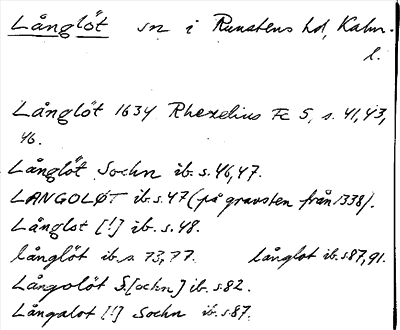 Långlöt sn i Runstens hd, Kalm.
l.
Långlöt 1634 Rhezelius Fc 5, s. 41, 43,
46.
Långlöt Sochn ib. s. 46, 47.
LANGOLØT ib. s. 47 (på gravsten från 1338).
Långlot [!] ib. s. 48.
långlöt ib. s. 73, 77. långlot ib. s 87, 91.
Långolöt S[ochn] ib. s. 82.
Långalot [!] Sochn ib. s. 87.